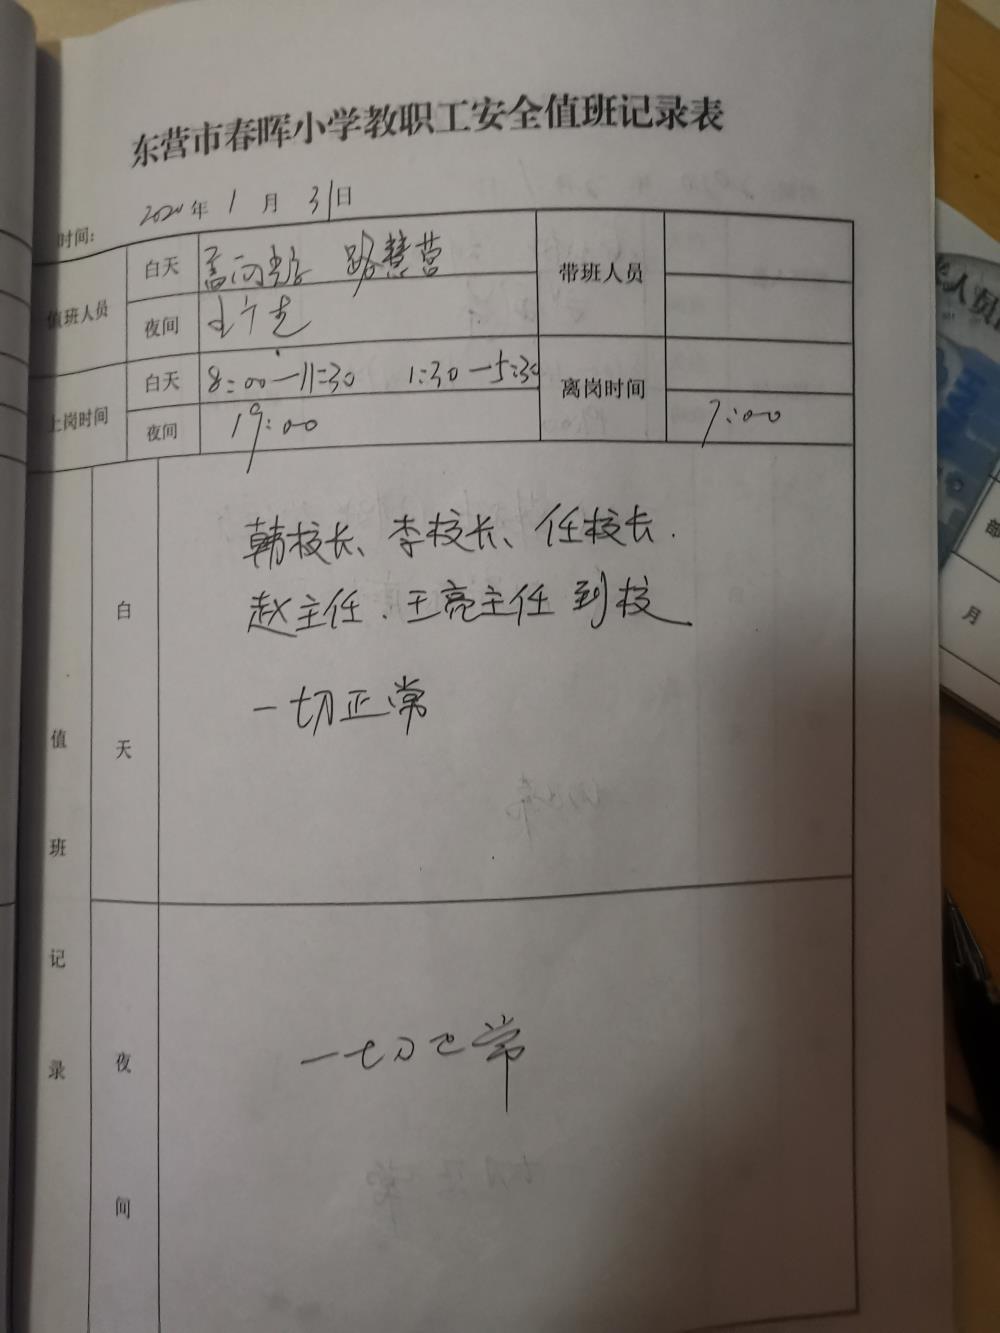 东营市春晖小学教职工安全值班记录表
时间: 2020年 1 月 31日
值班人员 白天 路慧营 带班人员
夜间
上岗时间 白天 8:00—11:30 1:30—5:30 离岗时间
夜间 19:00 7:00
值班记录
白天
韩校长、李校长、任校长.
赵主任.王亮主任 到校
一切正常
夜间
一切正常
部
月